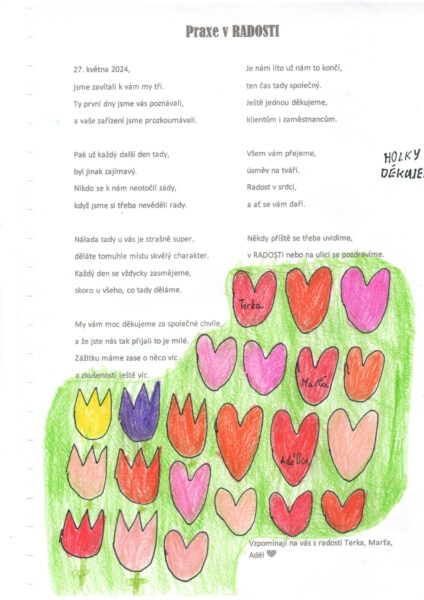 Praxe v RADOSTI
27. května 2024,
jsme zavítali k vám my tři.
Ty první dny jsme vás poznávali,
a vaše zařízení jsme prozkoumávali.
Pak už každý další den tady,
byl jinak zajímavý.
Nikdo se k nám neotočil zády,
když jsme si třeba nevěděli rady.
Nálada tady u vás je strašně super,
děláte tomuhle místu skvělý charakter.
Každý den se vždycky zasmějeme,
skoro u všeho, co tady děláme.
My vám moc děkujeme za společné chvíle,
a že jste nás tak přijali to je milé.
Zážitků máme zase o něco víc
a zkušeností ještě víc.
Je nám líto už nám to končí,
ten čas tady společný.
Ještě jednou děkujeme,
klientům i zaměstnancům.
Všem vám přejeme,
úsměv na tváři.
Radost v srdci,
a ať se vám daří.
Někdy příště se třeba uvidíme,
v RADOSTI nebo na ulici se pozdravíme.
HOLKY
DĚKUJE
Terka
Marťa
Adélka
Vzpomínají na vás s radostí Terka, Marťa,
Adél